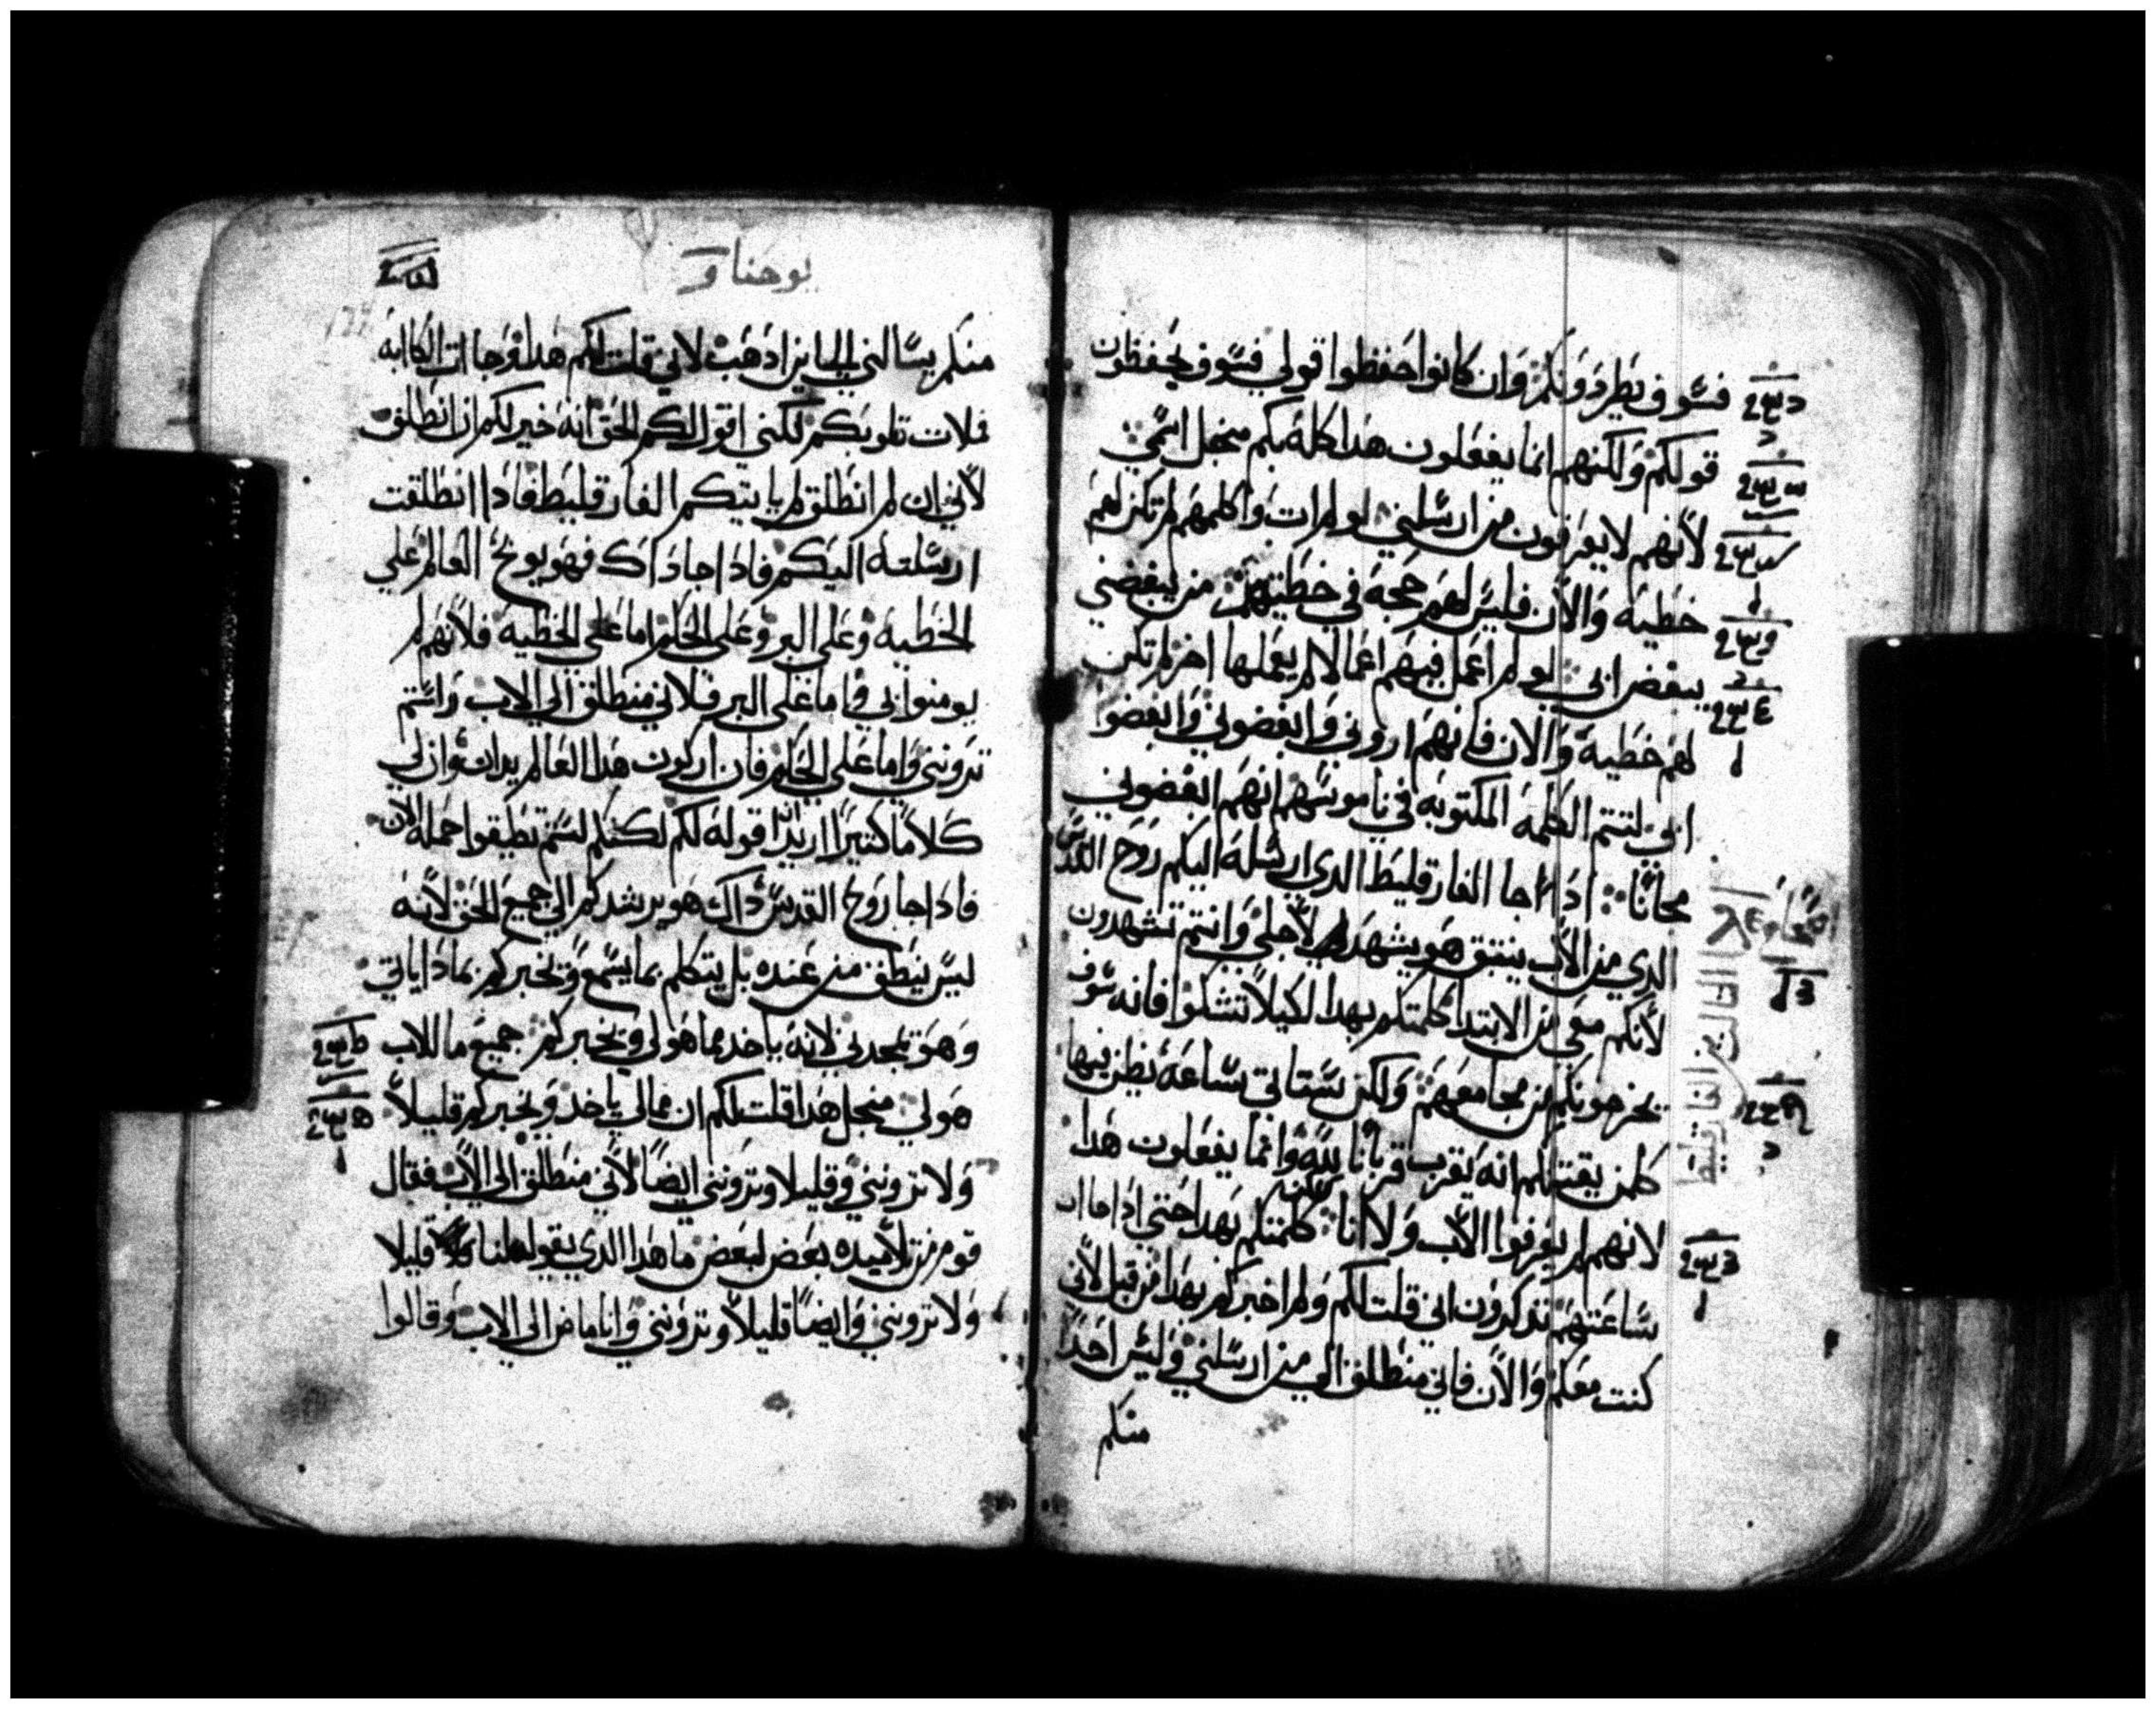 فسوف يطردونكم وان كانوا حفظوا قولي فسوف يحفظون
قولكم ولكنهم انما يفعلون هذا كله بكم منجل اسمي
لانهم لا يعرفون من ارسلني لو لم ات واكلمهم لم تكن لهم
خطيه والان فليس لهم حجه في خطيتهم من يبغضني
يبغض ابي لو لم اعمل فيهم اعمالا لم يعملها اخر لم تكن
لهم خطيه والان فانهم اروني وابغضوني وابغضوا
ابي لتتم الكلمه المكتوبه في ناموسهم انهم ابغضوني
مجانا اذا جا الفارقليط الدي ارسله اليكم روح القدس
الدي من الاب ينبثق هو يشهد لاجلي وانتم تشهدون
لانكم معي من الابتدا كلمتكم بهدا لكيلا تشكوا فانه سوف
يخرجونكم من مجامعهم ولكن ستاتي ساعه يظن فيها
كلمن يقتلكم انه يقرب قربانا لله وانما يفعلون هدا
لانهم لم يعرفوا الاب ولا انا لكنني كلمتكم بهدا حتي اذا ما ات
ساعتهم تدكرون اني قلت لكم ولم اخبركم بهدا من قبل لاني
كنت معكم والان فاني منطلق الي من ارسلني وليس احدا
منكم
يوحنا
منكم يسالني الي اين اذهب لاني قلت لكم هدا وجات الكابه
فملات قلوبكم لكني اقول لكم الحق انه خير لكم ان انطلق
لاني ان لم انطلق لم ياتيكم الفارقليط فاذا انطلقت
ارسلته اليكم فاذا جا داك فهو يوبخ العالم علي
الخطيه وعلي البر وعلي الحكم اما علي الخطيه فلانهم لم
يومنوا بي واما علي البر فلاني منطلق الي الاب ولستم
تروني واما علي الحكم فان اركون هدا العالم يدان وان لي
كلاما كثيرا اريد اقوله لكم لكنكم لستم تطيقوا حمله الان
فاذا جا روح القدس داك هو يرشدكم الي جميع الحق لانه
ليس ينطق من عنده بل يتكلم بما يسمع ويخبركم بما ذا ياتي
وهو يمجدني لانه ياخد مما هو لي ويخبركم جميع ما للاب
هو لي منجل هدا قلت لكم ان مما لي ياخد ويخبركم قليلا
ولا ترونني وقليلا وترونني ايضا لاني منطلق الي الاب فقال
قوم من تلاميده بعض لبعض ما هدا الدي يقوله لنا قليلا
ولا ترونني وايضا قليلا وترونني وانا ماض الي الاب وقالوا